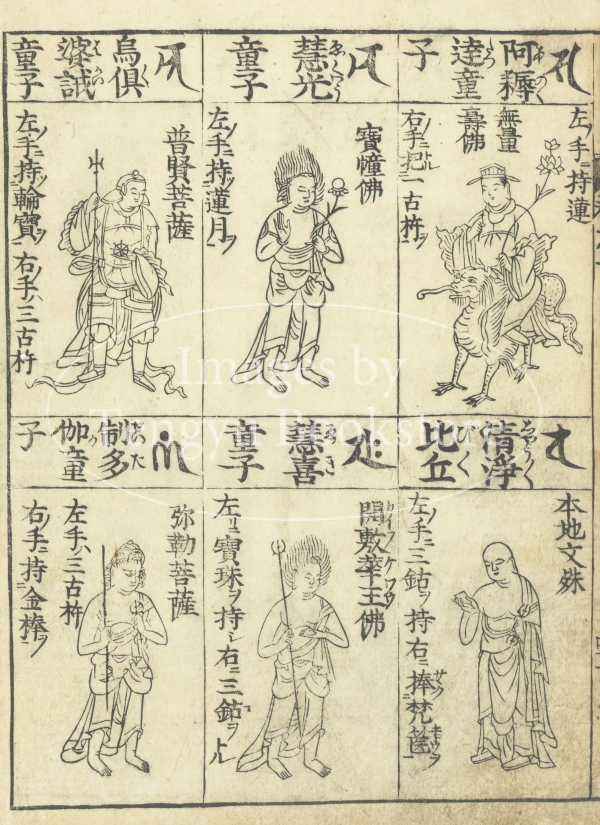 阿耨
達童
子
左ノ手ニ持蓮
無量
壽佛
右ノ手ニ把ル一古杵ヲ
慧光
童子
寳幢佛
左ノ手ニ持ツ蓮月ヲ
烏倶
婆誐
童子
普賢菩薩
左ノ手ニ持ツ輪寳ヲ右ノ手ハ三古杵
清浄
比丘
本地文殊
左ノ手ニ三鈷ヲ持右ニ捧梵篋ヲ
慧喜
童子
開敷華王佛
左リニ寳珠ヲ持シ右ニ三鈷ヲトル
制多
伽童
子
弥勒菩薩
左ノ手ハ三古杵
右ノ手ニ持金棒ヲ
Images by
Tengyu Bookstore